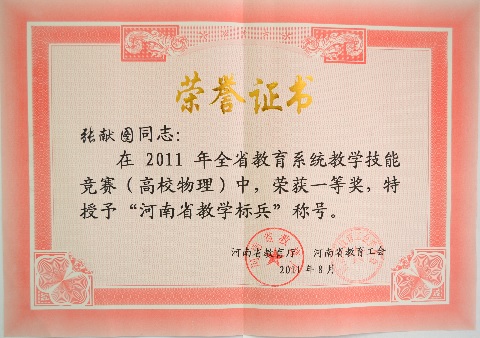 荣誉证书
张献图同志:
在 2011 年全省教育系统教学技能
竞赛（高校物理）中，荣获一等奖，特
授予“河南省教学标兵”称号。
河南省教育厅 河南省教育工会
2011 年 8 月